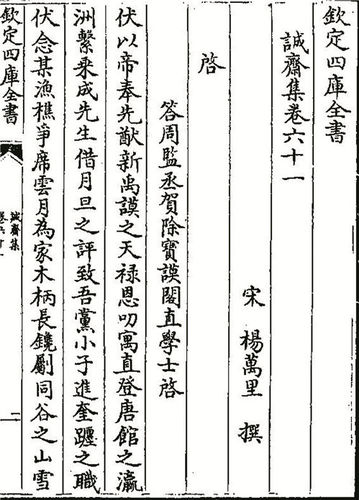 欽定四庫全書
誠齋集卷六十一
宋 楊萬里 撰
啓
答周監丞賀除寶謨閣直學士啓
伏以帝奉先猷新禹謨之天禄恩叨寓直登唐館之瀛
洲繫乗成先生借月旦之評致吾黨小子進奎躔之職
伏念某漁樵爭席雲月為家木柄長鑱劚同谷之山雪
欽定四庫全書
誠齋集
卷六十一